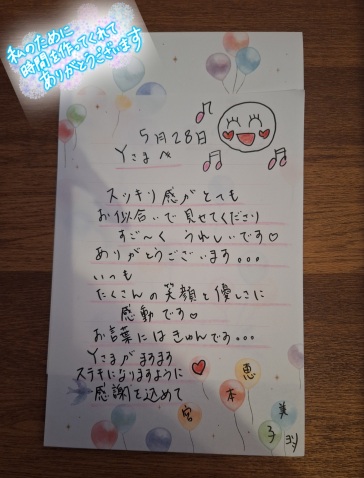 私のために
時間を作ってくれて
ありがとうございます
5月28日
Yさまへ
スッキリ感がとても
お似合いで見せてくださり
すご〜く うれしいです♡
ありがとうございます。。。
いつも
たくさんの笑顔と優しさに
感動です♡
お言葉にはきゅんです...
Yさまがますます
ステキになりますように
感謝を込めて
宮本恵美子